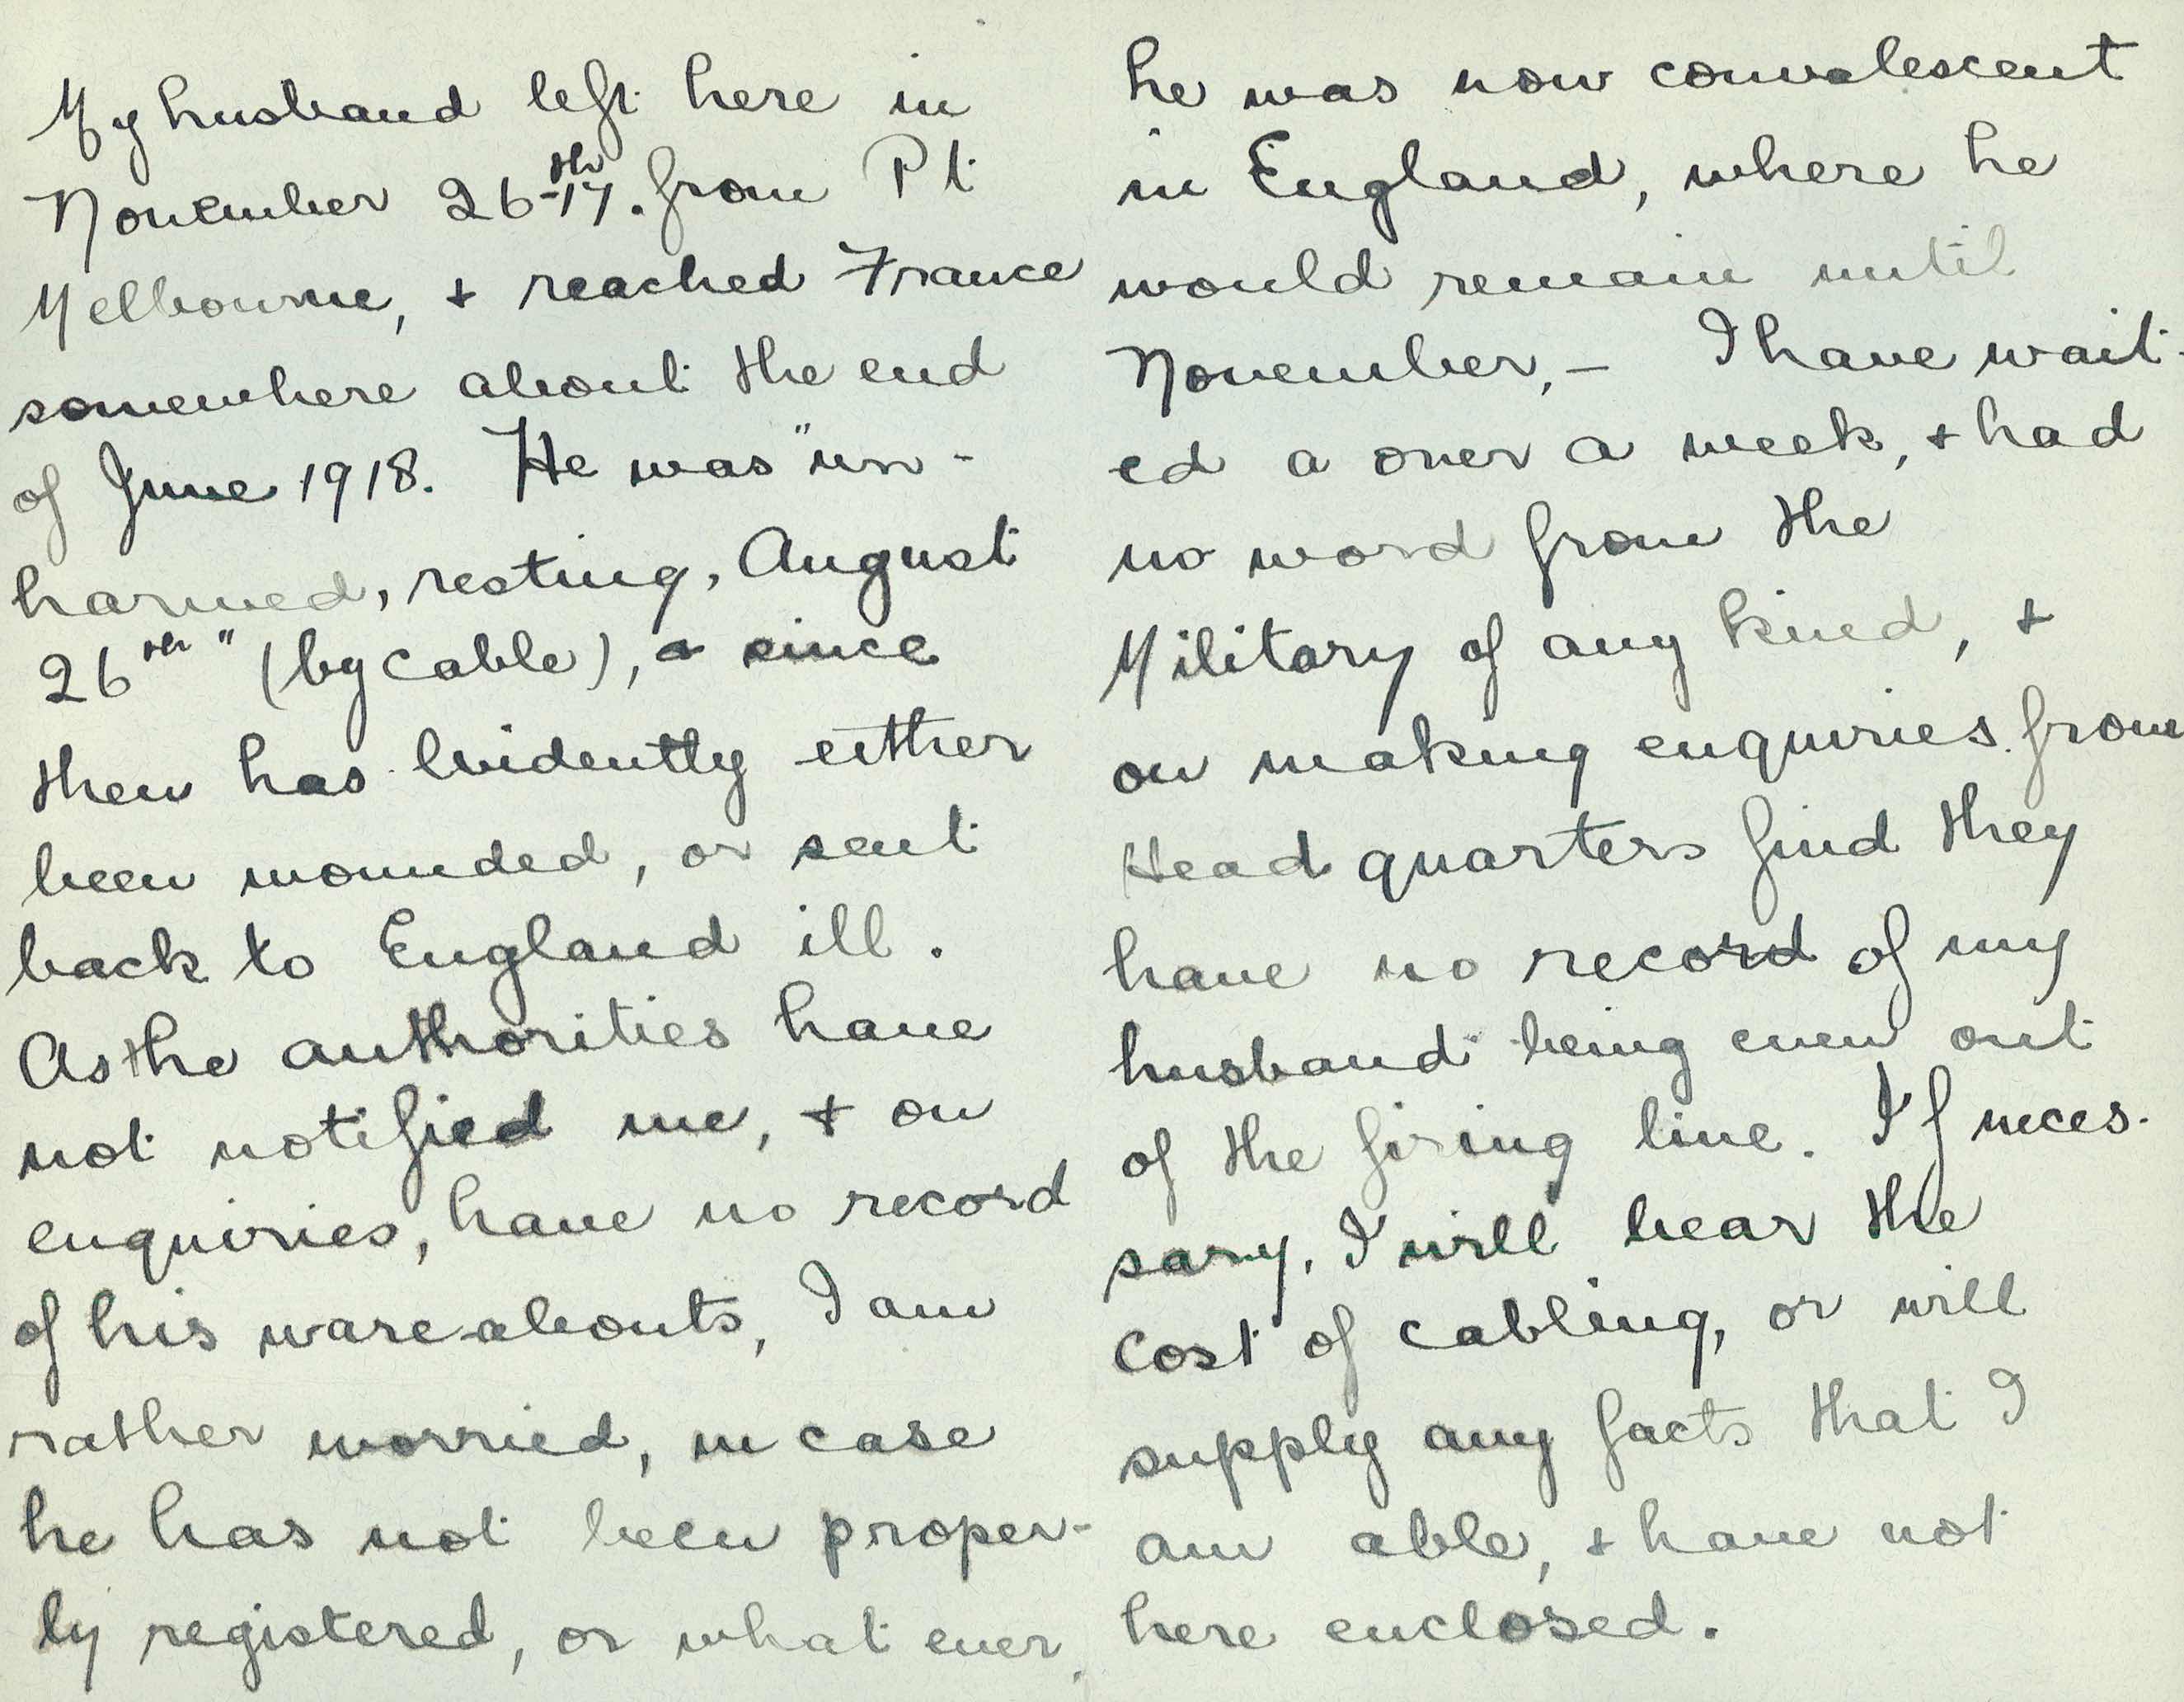 My husband left here in
November 26th-17. from Pt
Melbourne, & reached France
somewhere about the end
of June 1918. He was "un-
harmed, resting, August
26th" (by cable), & since
then has evidently either
been wounded, or sent
back to England ill.
As the authorities have
not notified me, & on
enquiries, have no record
of his ware-abouts, I am
rather worried, in case
he has not been proper-
ly registered, or what ever.
he was now convalescent
in England, where he
would remain until
November, – I have wait-
ed a over a week, & had
no word from the
Military of any kind, &
on making enquiries from
Head quarters find they
have no record of my
husband being even out
of the firing line. If neces-
sary, I will bear the
cost of cabling, or will
supply any facts that I
am able, & have not
here enclosed.